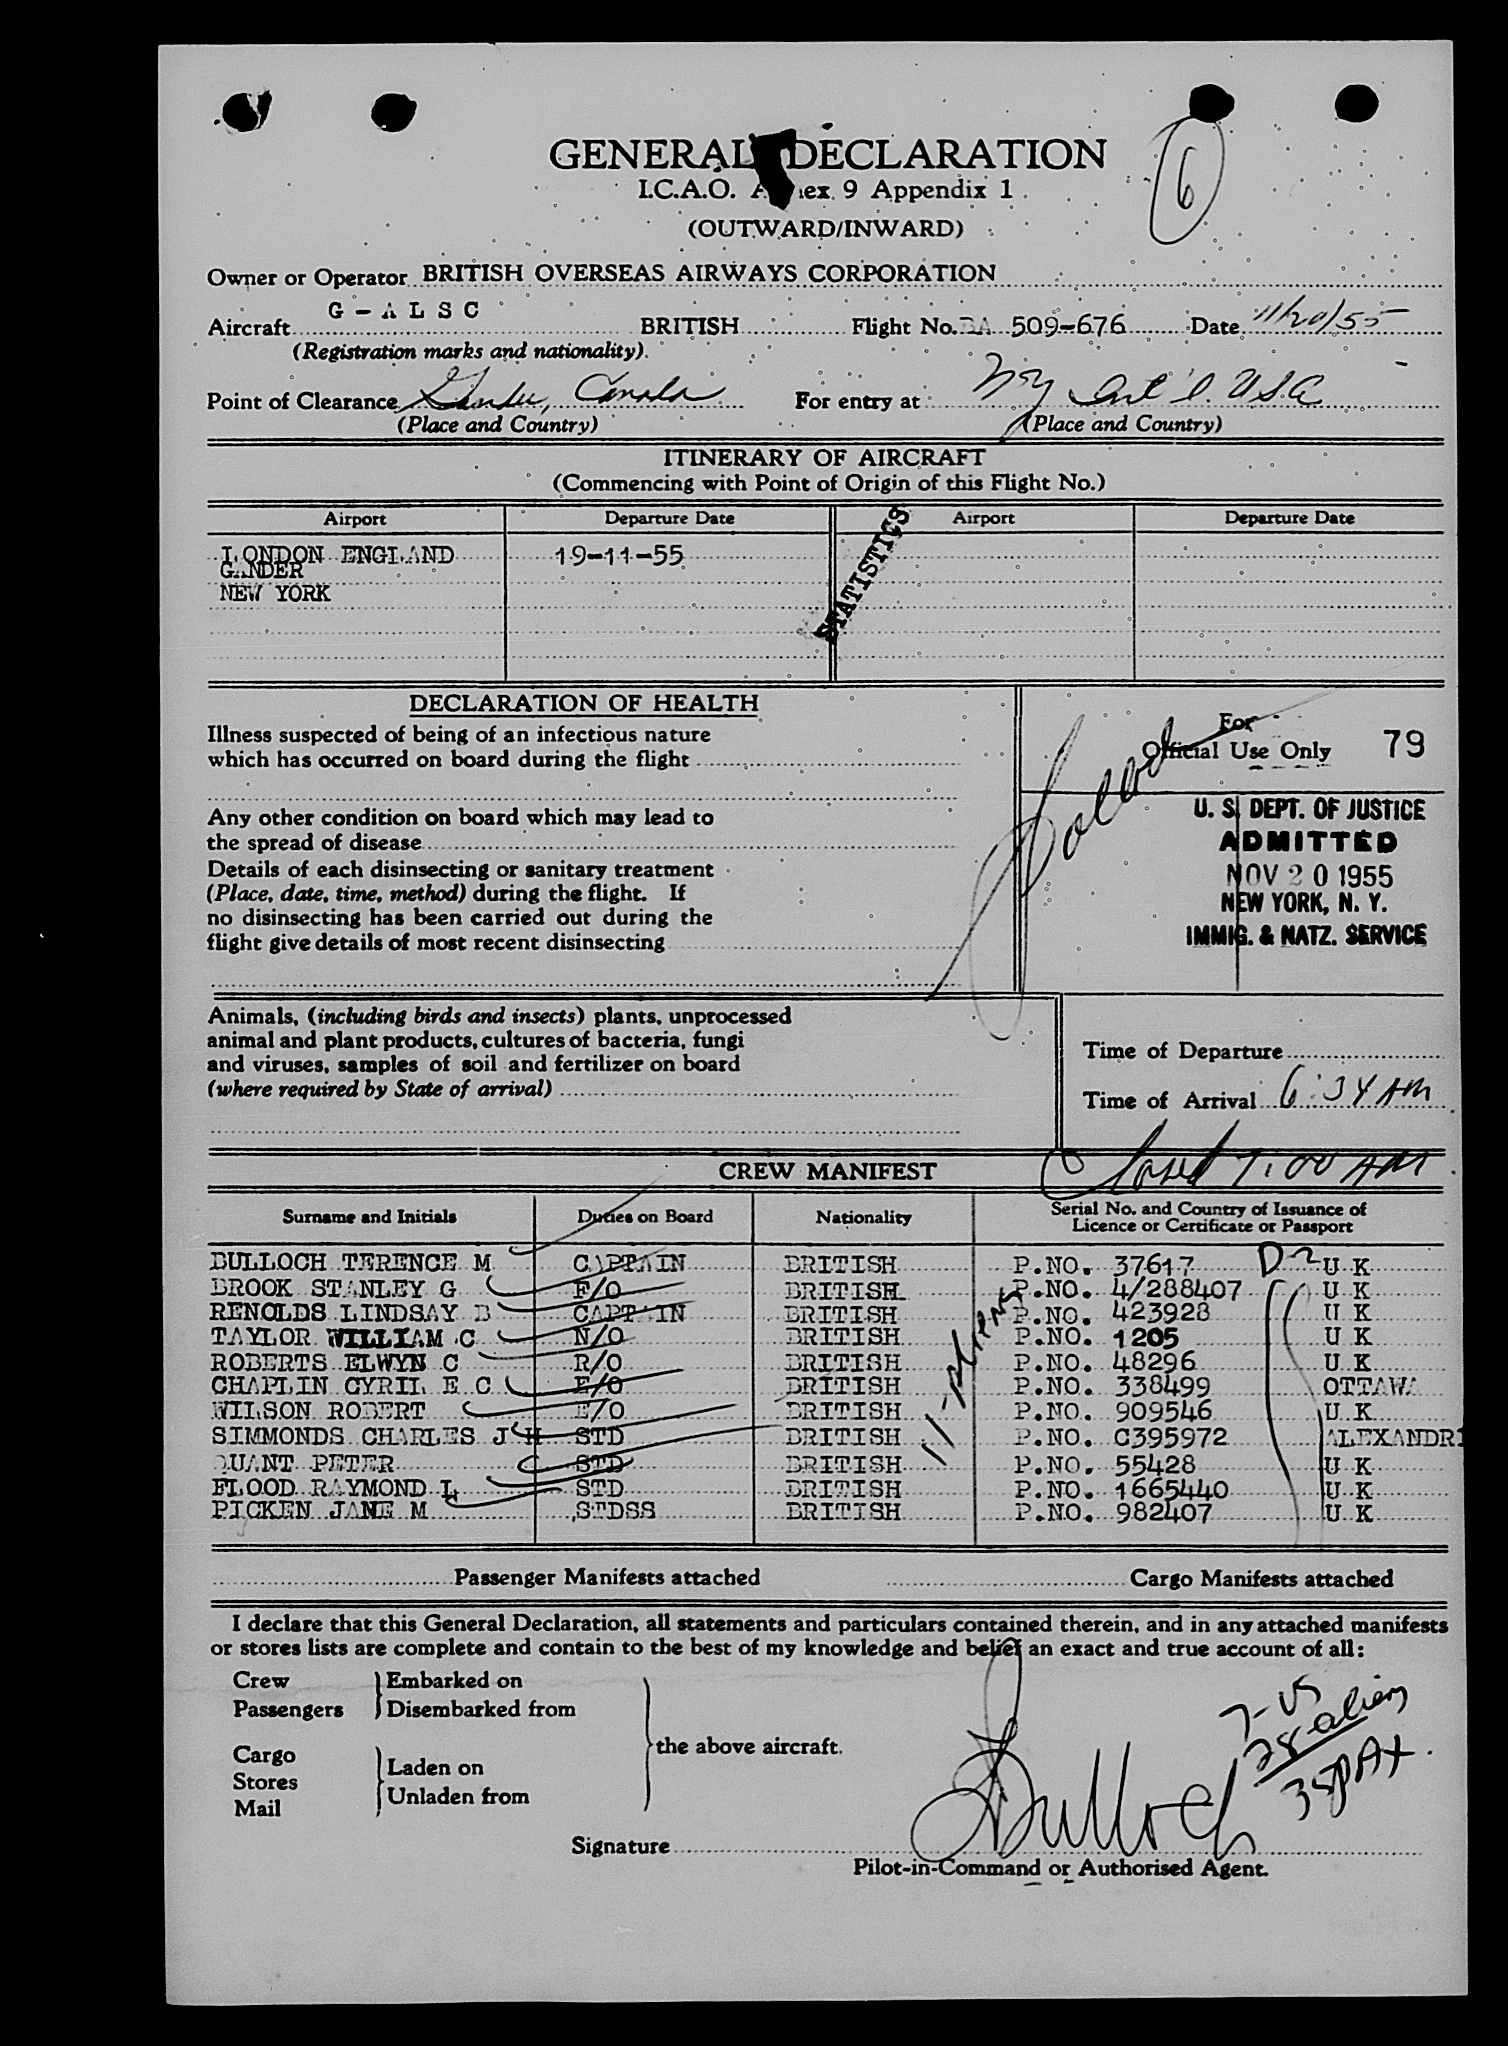 GENERAL DECLARATION
6
I.C.A.O. Annex 9 Appendix 1
(OUTWARD/INWARD)
Owner or Operator BRITISH OVERSEAS AIRWAYS CORPORATION
G - A L S C
Aircraft BRITISH Flight No. BA 509-676 Date 11/20/55
(Registration marks and nationality).
Point of Clearance Gander, Canada For entry at NY Int'l. USA
(Place and Country) (Place and Country)
ITINERARY OF AIRCRAFT
(Commencing with Point of Origin of this Flight No.)
Airport Departure Date Airport Departure Date
LONDON ENGLAND 19-11-55
GANDER
NEW YORK
STATISTICS
DECLARATION OF HEALTH
Illness suspected of being of an infectious nature
which has occurred on board during the flight
Any other condition on board which may lead to
the spread of disease
Details of each disinsecting or sanitary treatment
(Place, date, time, method) during the flight. If
no disinsecting has been carried out during the
flight give details of most recent disinsecting
For
Official Use Only 79
U. S. DEPT. OF JUSTICE
ADMITTED
NOV 20 1955
NEW YORK, N. Y.
IMMIG. & NATZ. SERVICE
Animals, (including birds and insects) plants, unprocessed
animal and plant products, cultures of bacteria, fungi
and viruses, samples of soil and fertilizer on board
(where required by State of arrival)
Time of Departure
Time of Arrival 6:34 AM
Closed 7:00 AM
CREW MANIFEST
Surname and Initials Duties on Board Nationality Serial No. and Country of Issuance of
Licence or Certificate or Passport
BULLOCH TERENCE M CAPTAIN BRITISH P.NO. 37617 D-2 U K
BROOK STANLEY G F/O BRITISH P.NO. 4/288407 U K
RENOLDS LINDSAY B CAPTAIN BRITISH P.NO. 423928 U K
TAYLOR WILLIAM C N/O BRITISH P.NO. 1205 U K
ROBERTS ELWYN C R/O BRITISH P.NO. 48296 U K
CHAPLIN CYRIL E C E/O BRITISH P.NO. 338499 OTTAWA
WILSON ROBERT E/O BRITISH P.NO. 909546 U K
SIMMONDS CHARLES J H STD BRITISH P.NO. C395972 ALEXANDRI
QUANT PETER STD BRITISH P.NO. 55428 U K
FLOOD RAYMOND L STD BRITISH P.NO. 1665440 U K
PICKEN JANE M STDSS BRITISH P.NO. 982407 U K
11-aliens
Passenger Manifests attached Cargo Manifests attached
I declare that this General Declaration, all statements and particulars contained therein, and in any attached manifests
or stores lists are complete and contain to the best of my knowledge and belief an exact and true account of all:
Crew Embarked on
Passengers Disembarked from
the above aircraft.
Cargo Laden on
Stores
Mail Unladen from
7-US
28-aliens
35pax.
Signature Bulloch
Pilot-in-Command or Authorised Agent.